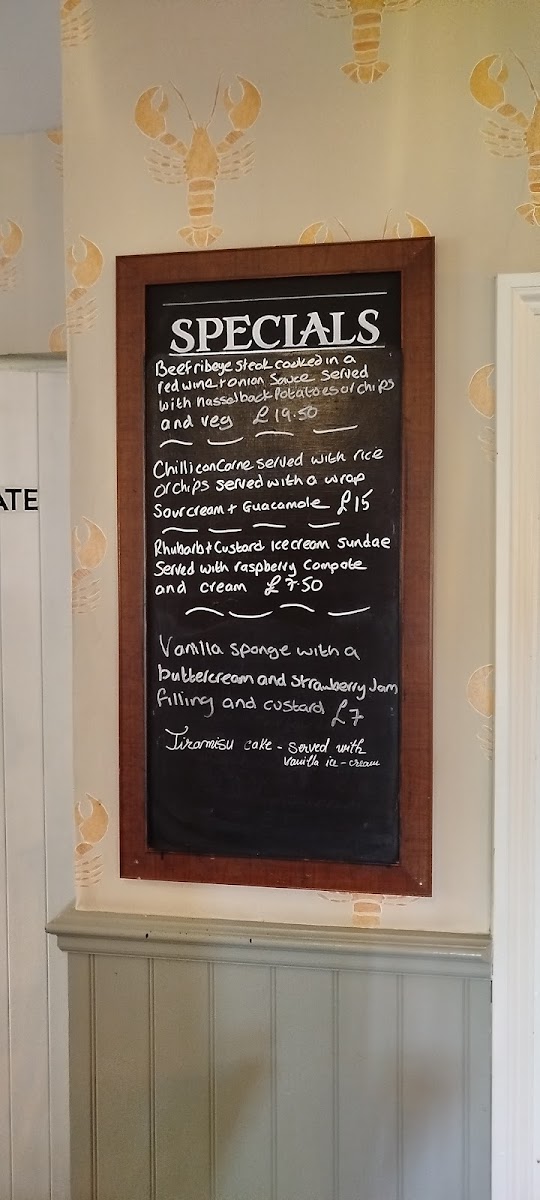 SPECIALS
Beef ribeye steak cooked in a
red wine + onion Sauce served
with hasselback Potatoes or chips
and veg £19.50
Chilli con Carne served with rice
or chips served with a wrap
Sour cream + Guacamole £15
Rhubarb + Custard Ice cream Sundae
Served with raspberry Compote
and cream £7.50
Vanilla Sponge with a
buttercream and strawberry Jam
filling and custard £7
Tiramisu cake - served with
vanilla ice-cream
ATE